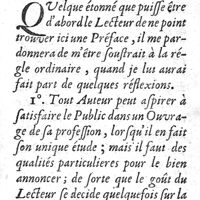 QUelque étonné que puisse être
d'abord le Lecteur de ne point
trouver ici une Préface, il me par-
donnera de m'être soustrait à la ré-
gle ordinaire, quand je lui aurai
fait part de quelques réflexions.
1°. Tout Auteur peut aspirer à
satisfaire le Public dans un Ouvra-
ge de sa profession, lorsqu'il en fait
son unique étude; mais il faut des
qualités particulieres pour le bien
annoncer; de sorte que le goût du
Lecteur se decide quelquefois sur la